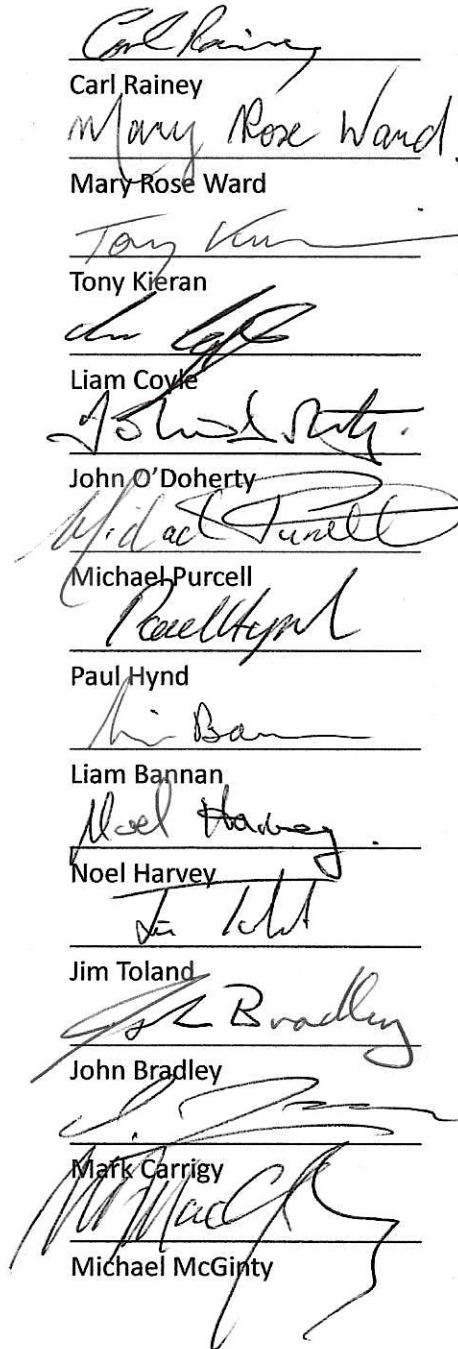 Carl Rainey
Carl Rainey
Mary Rose Ward.
Mary Rose Ward
Tony
Tony Kieran
Liam Coyle
John O'Doherty
Michael Purcell
Michael Purcell
Paul Hynd
Paul Hynd
Liam Bannan
Noel Harvey.
Noel Harvey
Jim Toland
John Bradley
John Bradley
Mark Carrigy
Michael McGinty